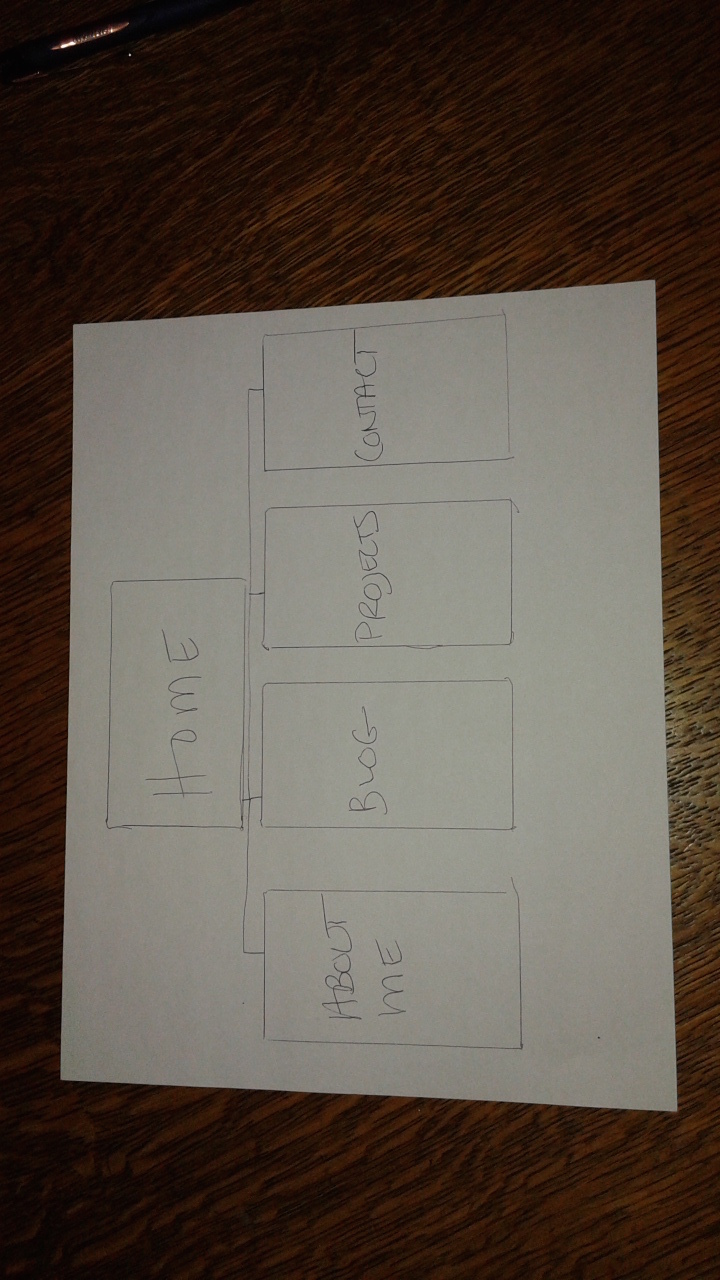 HOME
ABOUT
ME
BLOG
PROJECTS
CONTACT